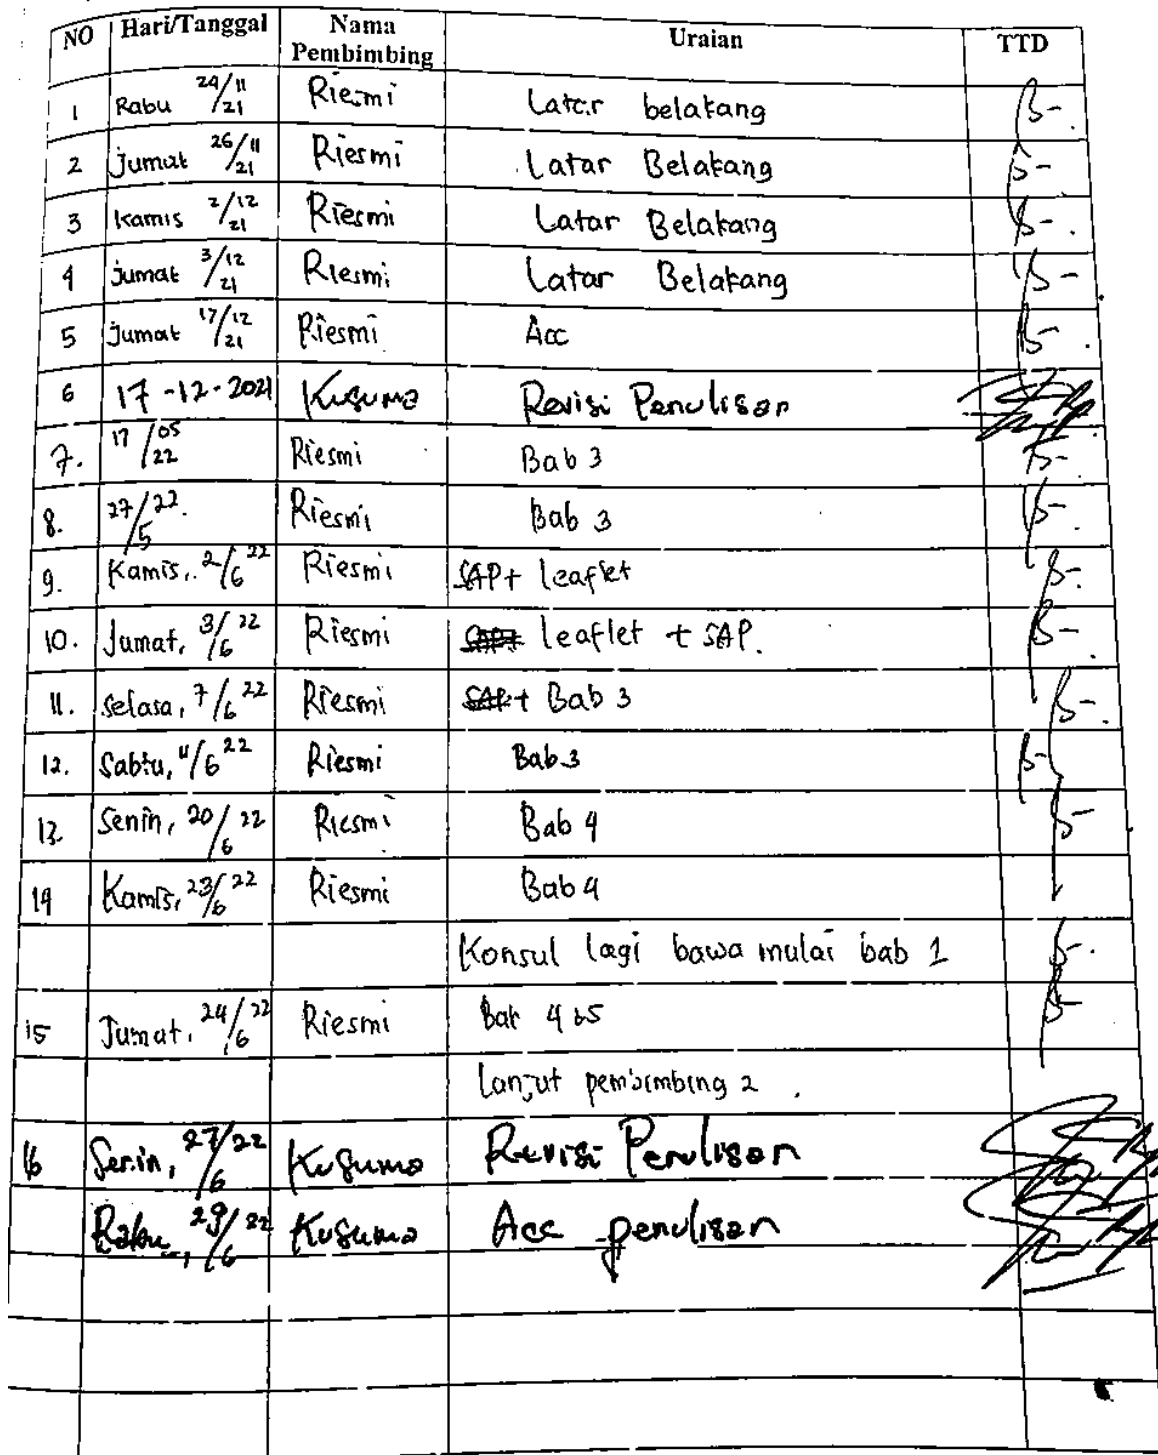 NO Hari/Tanggal Nama Pembimbing Uraian TTD
1 Rabu 24/11/21 Riesmi Latar belakang
2 Jumat 26/11/21 Riesmi Latar Belakang
3 Kamis 2/12/21 Riesmi Latar Belakang
4 Jumat 3/12/21 Riesmi Latar Belakang
5 Jumat 17/12/21 Riesmi Acc
6 17-12-2021 Kusuma Revisi Penulisan
7. 17/05/22 Riesmi Bab 3
8. 27/5/22. Riesmi Bab 3
9. Kamis, 2/6 22 Riesmi SAP + leaflet
10. Jumat, 3/6 22 Riesmi leaflet + SAP.
11. Selasa, 7/6 22 Riesmi + Bab 3
12. Sabtu, 11/6 22 Riesmi Bab 3
13. Senin, 20/6 22 Riesmi Bab 4
14 Kamis, 23/6 22 Riesmi Bab 4
Konsul lagi bawa mulai bab 1
15 Jumat, 24/6 22 Riesmi Bab 4 5
lanjut pembimbing 2.
16 Senin, 27/6 22 Kusuma Revisi Penulisan
Rabu, 29/6 22 Kusuma Acc penulisan